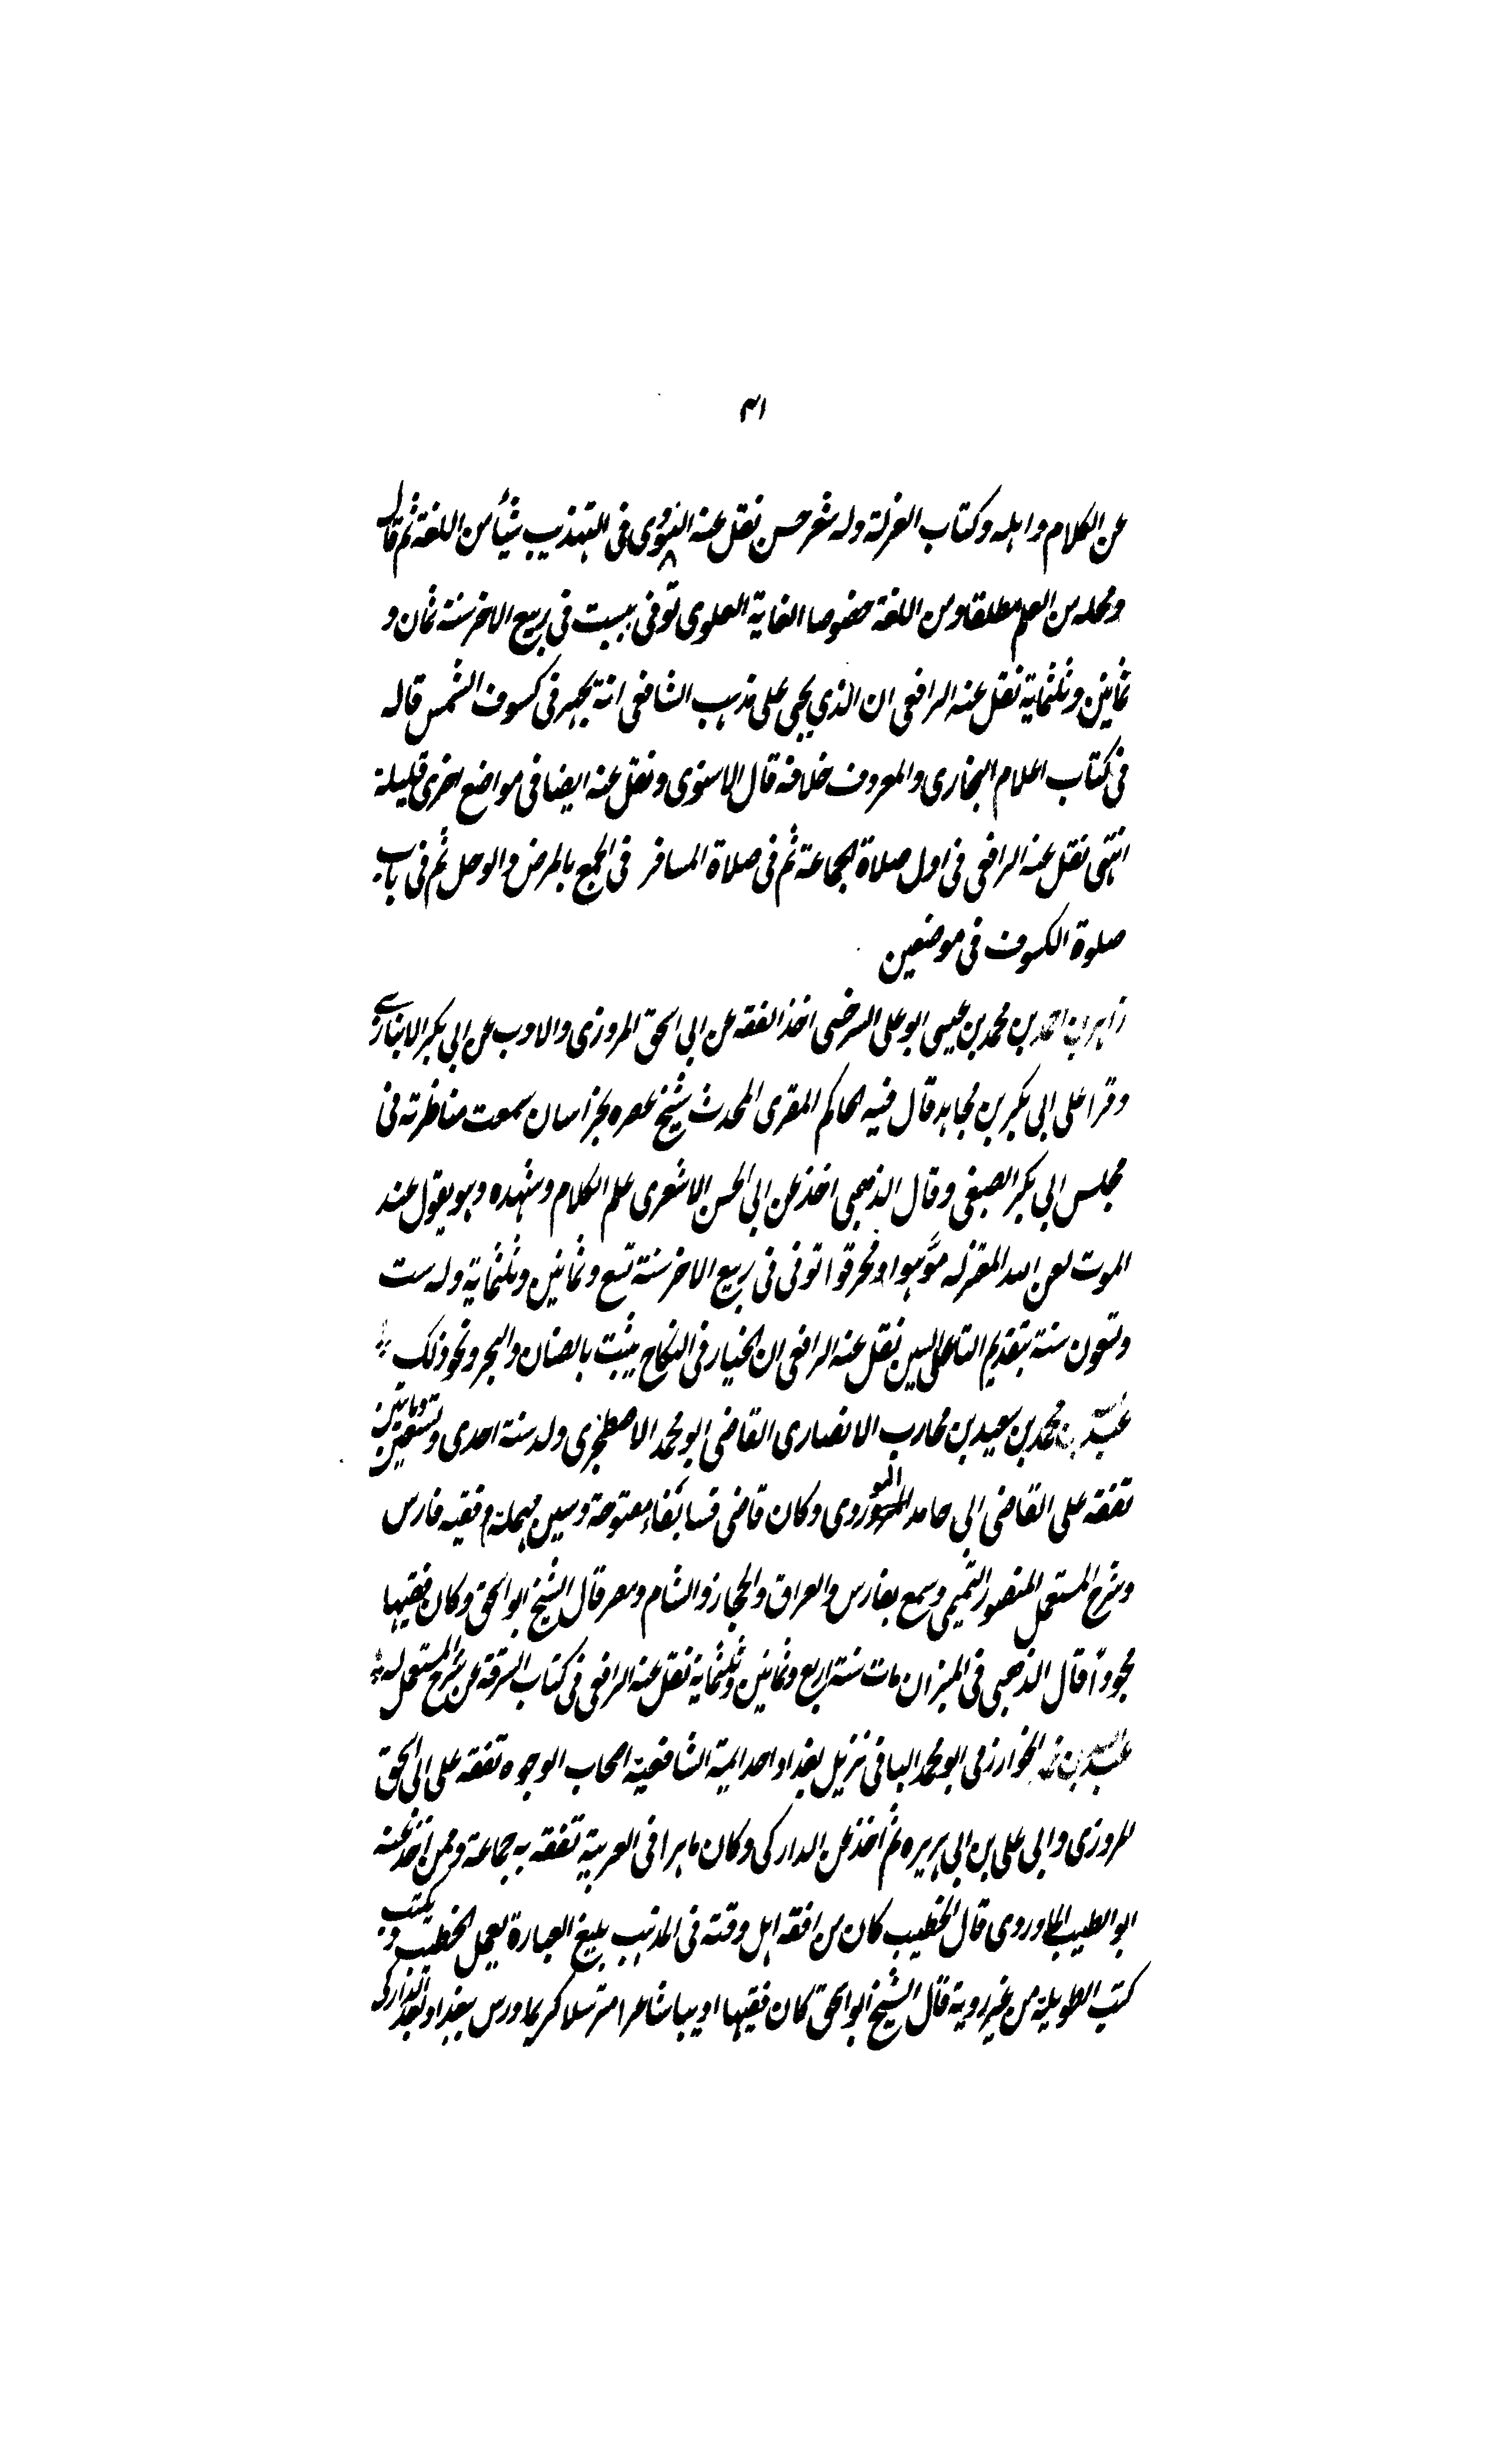 ٣١
عن الكلام واهله وكتاب العزلة وله شعر حسن نقل عنه النووى فى التهذيب شيأ من اللغة ثم قال
ومحله من العلم مطلقا ومن اللغة خصوصا الغاية العلوى توفى ببست فى ربيع الاخر سنة ثمان و
ثمانين وثلثماية نقل عنه الرافعى ان الذي يجى على مذهب الشافعى انه يجهر فى كسوف الشمس قاله
فى كتاب اعلام البخارى والمعروف خلافه قال الاسنوى ونقل عنه ايضا فى مواضع اخرى قليلة
انتهى نقل عنه الرافعى فى اول صلاة الجماعة ثم فى صلاة المسافر فى الجمع بالمرض والوحل ثم فى باب
صلوة الكسوف فى موضعين
زاهر بن احمد بن محمد بن عيسى ابو على السرخسى اخذ الفقه عن ابى اسحق المروزى والادب عن ابى بكر الانبارى
وقرا على ابى بكر بن مجاهد قال فيه الحاكم المقرى المحدث شيخ عصره بخراسان سمعت مناظرته فى
مجلس ابى بكر الصبغى وقال الذهبى اخذ عن ابى الحسن الاشعرى علم الكلام وشهده وهو يقول عند
الموت لعن الله المعتزله موهوا ومخرقوا توفى فى ربيع الاخر سنة تسع وثمانين وثلثماية وله ست
وتسعون سنة بتقديم التا على السين نقل عنه الرافعى ان الخيار فى النكاح يثبت بالصنان والبخر ونحو ذلك
عبد الله بن محمد بن سعيد بن محارب الانصارى القاضى ابو محمد الاصطخرى ولد سنة احدى وتسعين ومايتين
تفقه على القاضى ابى حامد المروروى وكان قاضى فسا بفاء مفتوحة وسين مهملة وفقيه فارس
وشرح المستعمل لمنصور التميمى وسمع بفارس والعراق والحجاز والشام ومصر قال الشيخ ابو اسحق وكان فقيها
مجودا قال الذهبى فى الميزان مات سنة اربع وثمانين وثلثماية نقل عنه الرافعى فى كتاب السرقة عن شرح المستعمل له
عبد الله بن محمد الخوارزمى ابو محمد البافى نزيل بغداد احد ايمة الشافعية اصحاب الوجوه تفقه على ابى اسحق
المروزى وابى على بن ابى هريره ثم اخذ عن الداركى وكان ماهرا فى العربية تفقه به جماعة وممن اخذ عنه
ابو الطيب والماوردى قال الخطيب كان من افقه اهل وقته فى المذهب بليغ العبارة يعمل الخطب ويكتب
كتب الطويلة من غير روية قال الشيخ ابو اسحق كان فقيها اديبا شاعرا مترسلا كريما ودرس ببغداد بعد الداركى